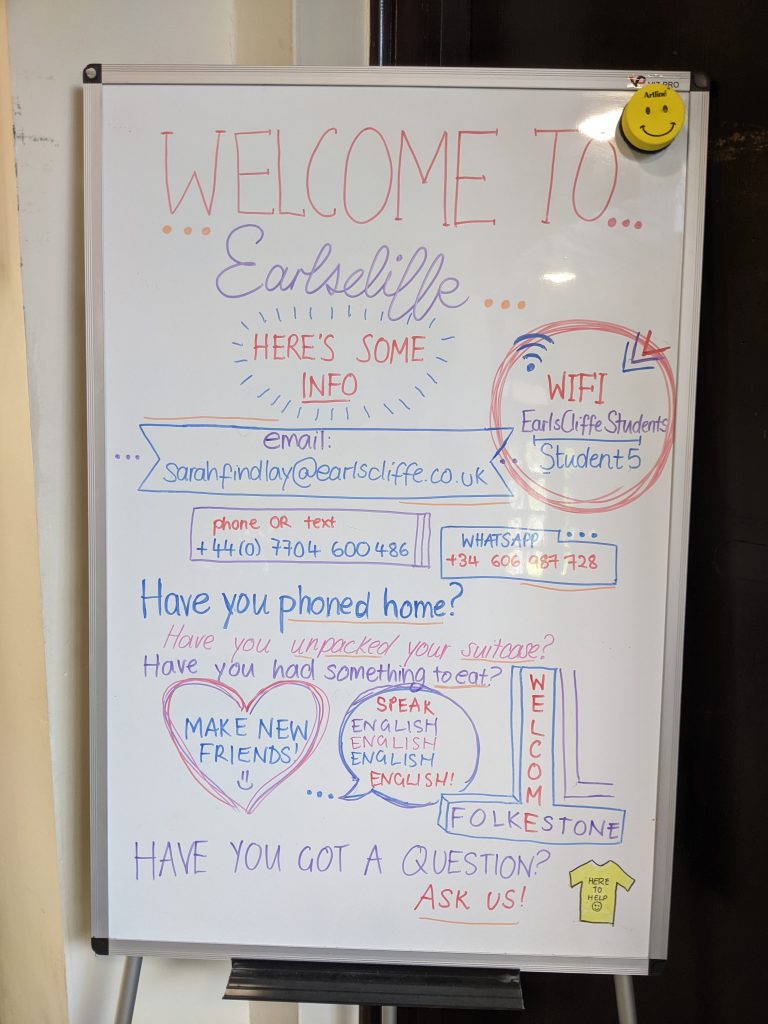 VIZ-PRO
Artline
WELCOME TO...
...Earlscliffe...
HERE'S SOME
INFO
WIFI
EarlsCliffeStudents
Student5
email:
sarahfindlay@earlscliffe.co.uk
phone OR text
+44(0) 7704 600486
WHATSAPP ...
+34 606 987 728
Have you phoned home?
Have you unpacked your suitcase?
Have you had something to eat?
MAKE NEW
FRIENDS!
SPEAK
ENGLISH
ENGLISH
ENGLISH
ENGLISH!
WELCOME
FOLKESTONE
HAVE YOU GOT A QUESTION?
ASK US!
HERE
TO
HELP